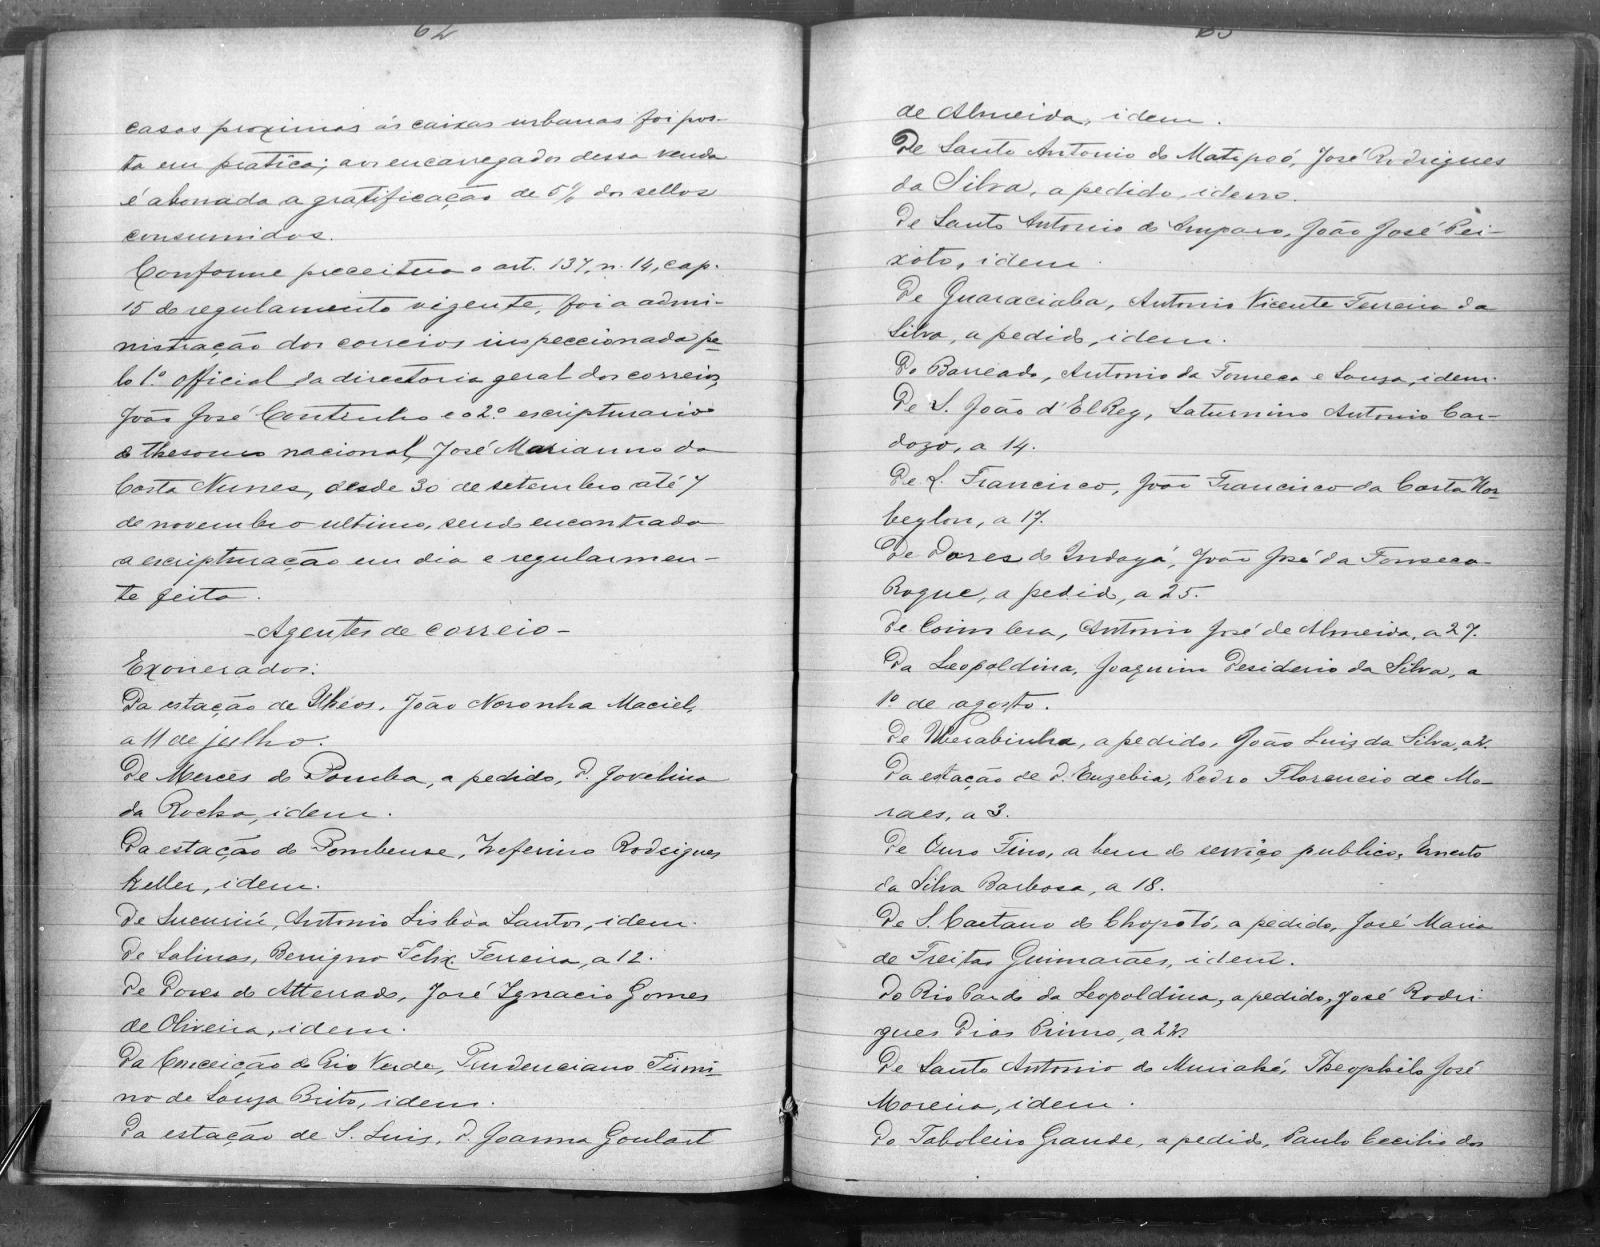 62
casas proximas ás caixas urbanas foi pos-
ta em pratica; aos encarregados dessa venda
é abonada a gratificação de 5% dos sellos
consumidos.
Conforme preceitua o art. 137, n. 14, cap.
15 do regulamento vigente, foi a admi-
nistração dos correios inspeccionada pe-
lo 1º official da directoria geral dos correios,
João José Coutinho e o 2º escripturario
do thesouro nacional, José Marianno da
Costa Nunes, desde 30 de setembro até 7
de novembro ultimo, sendo encontrada
a escripturação em dia e regularmen-
te feita.
- Agentes de correio -
Exonerados:
Da estação de Ilhéos, João Noronha Maciel,
a 11 de julho.
De Mercês do Pomba, a pedido, D. Jovelina
da Rocha, idem.
Da estação do Pombense, Zeferino Rodrigues
Keller, idem.
De Sucuriú, Antonio Lisbôa Santos, idem.
De Salinas, Benigno Felix Ferreira, a 12.
De Dores do Atterrado, José Ignacio Gomes
de Oliveira, idem.
Da Conceição do Rio Verde, Prudenciano Firmi-
no de Souza Brito, idem.
Da estação de S. Luis, D. Joanna Goulart
63
de Almeida, idem.
De Santo Antonio do Matipoó, José Rodrigues
da Silva, a pedido, idem.
De Santo Antonio do Amparo, João José Pei-
xoto, idem.
De Guaraciaba, Antonio Vicente Ferreira da
Silva, a pedido, idem.
Do Barreado, Antonio da Fonseca e Souza, idem.
De S. João d'El Rey, Saturnino Antonio Car-
dozo, a 14.
De S. Francisco, João Francisco da Costa
a 17.
De Dores do Indayá, João José da Fonseca
Roque, a pedido, a 25.
De Coimbra, Antonio José de Almeida, a 27.
Da Leopoldina, Joaquim Desiderio da Silva, a
1º de agosto.
De Uberabinha, a pedido, João Luiz da Silva, a 2.
Da estação de D. Euzebia, Pedro Florencio de Mo-
raes, a 3.
De Ouro Fino, a bem do serviço publico, Ernesto
da Silva Barbosa, a 18.
De S. Caetano do Chopotó, a pedido, José Maria
de Freitas Guimarães, idem.
Do Rio Pardo da Leopoldina, a pedido, José Rodri-
gues Dias Primo, a 22.
De Santo Antonio do Muriahé, Theophilo José
Moreira, idem.
Do Taboleiro Grande, a pedido, Paulo Cecilio dos